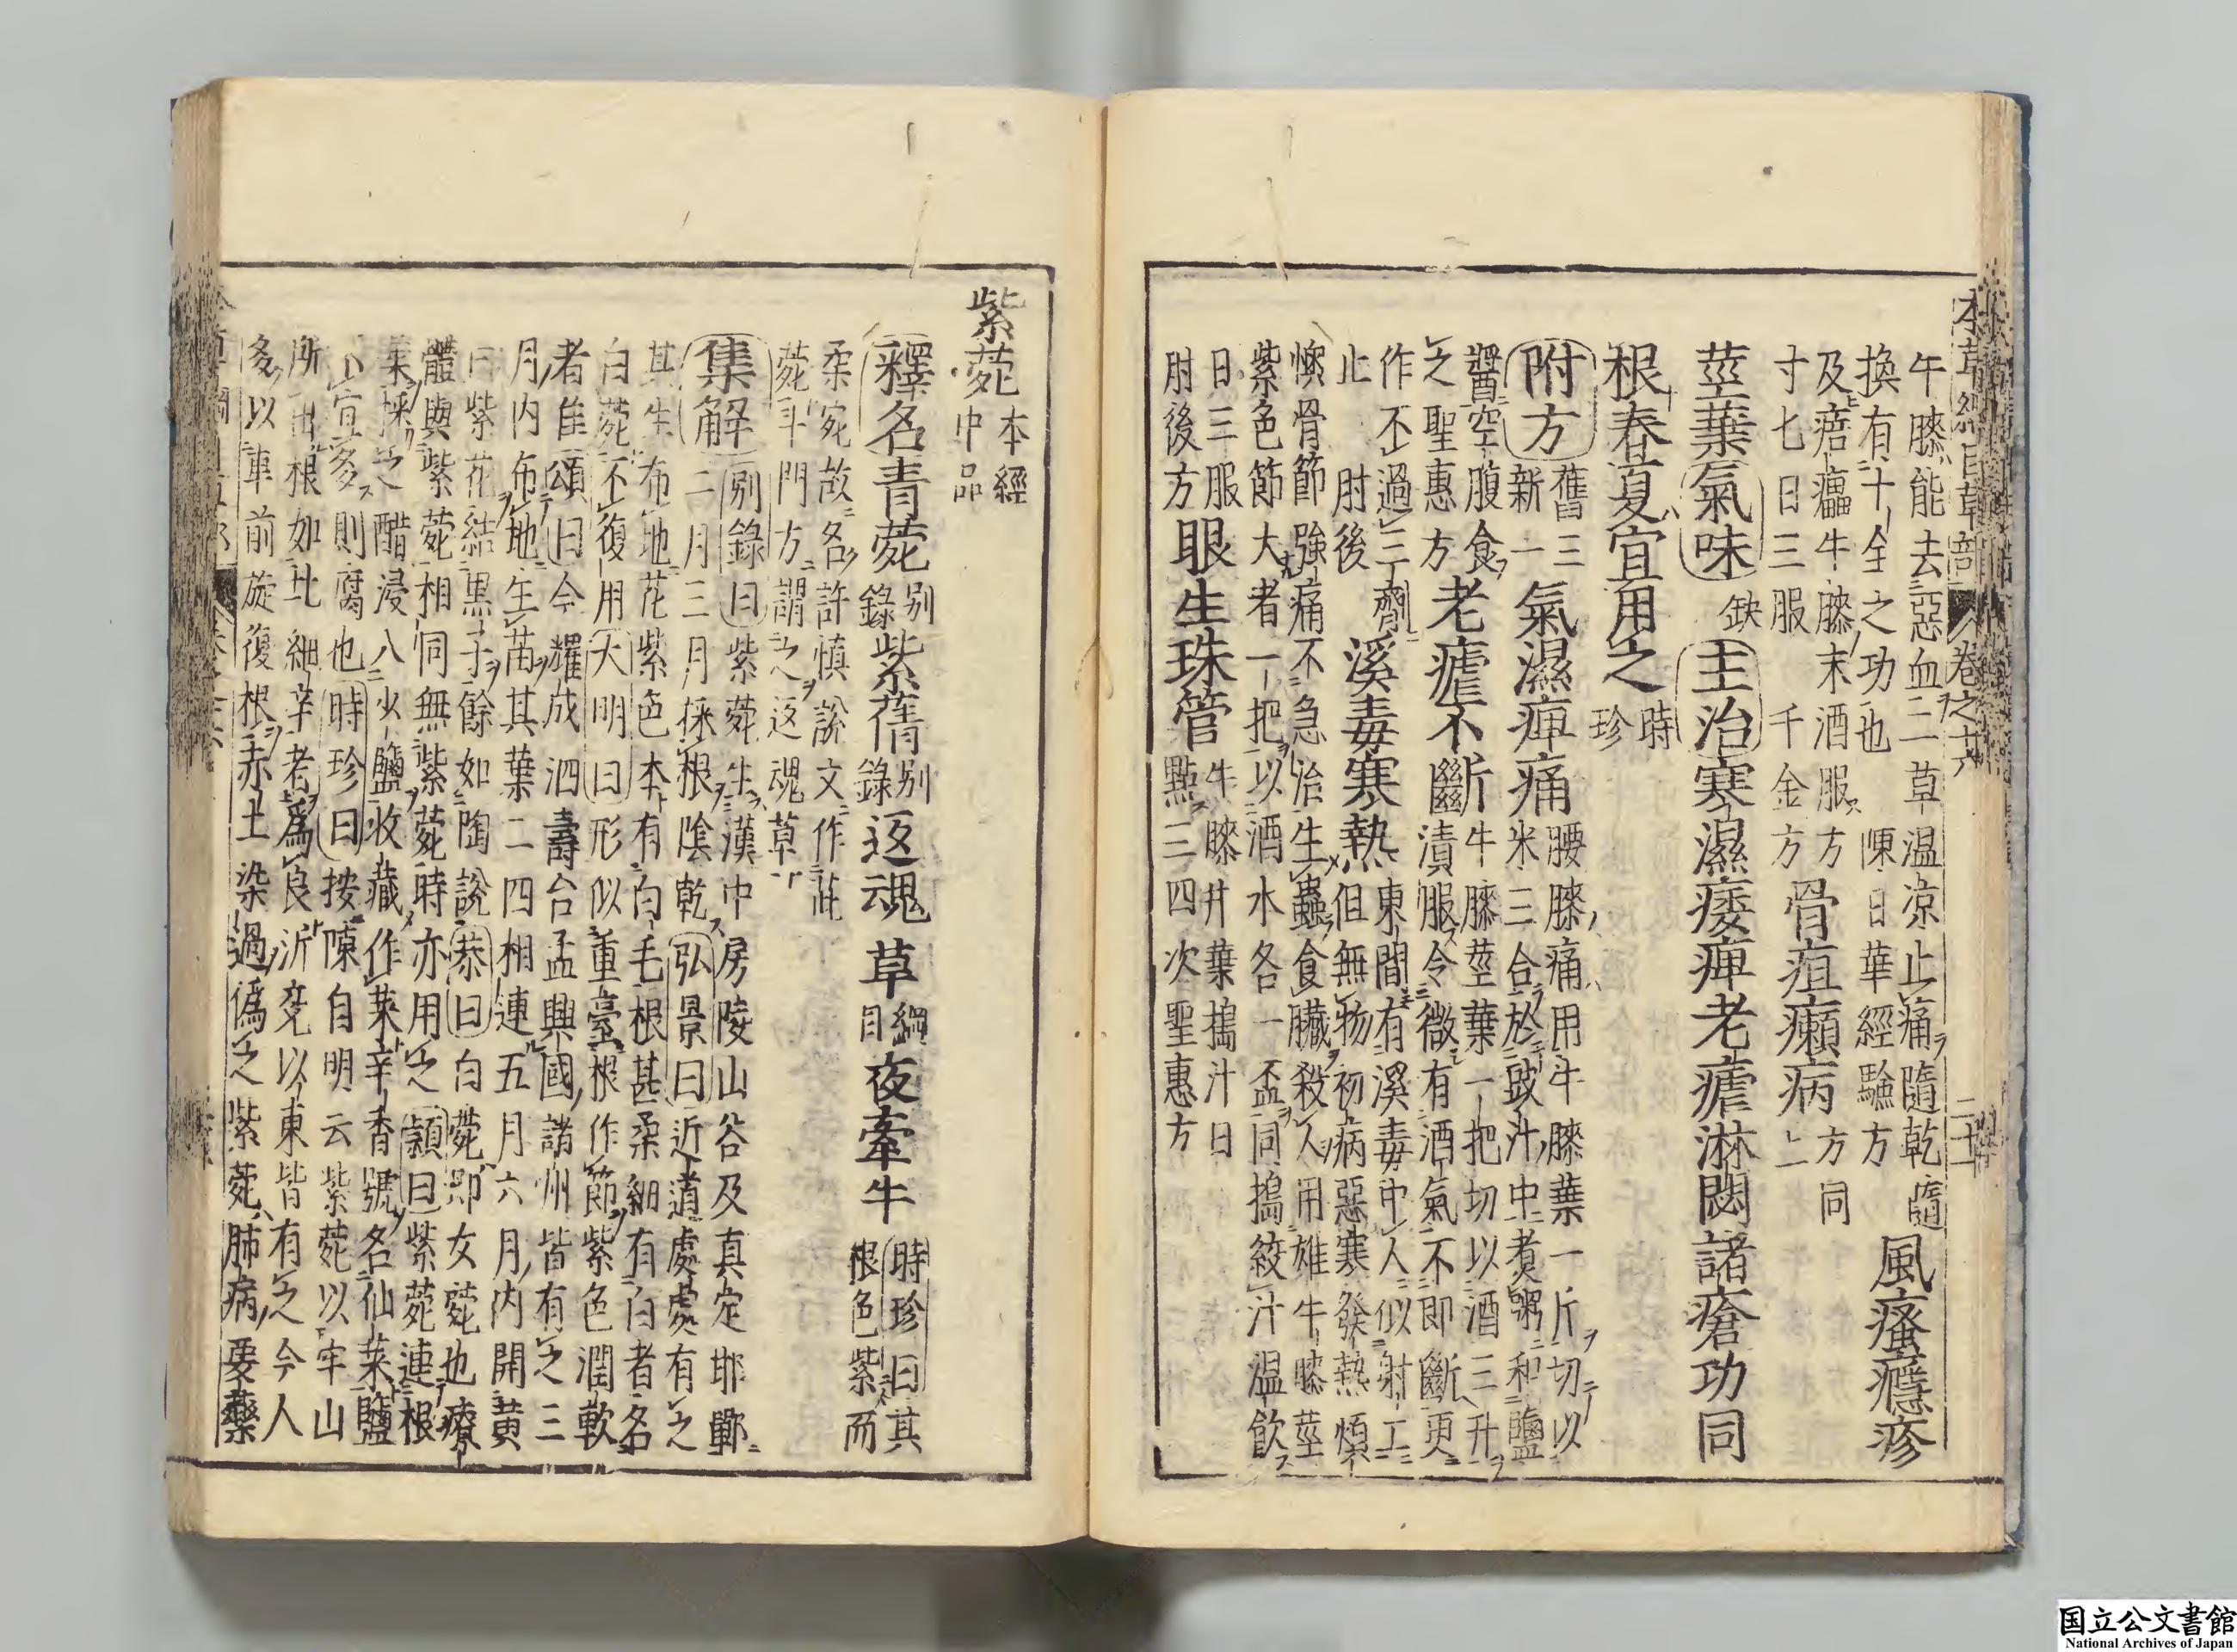 本草綱目草部 卷之十六 二十
午膝能去惡血二草温涼止痛隨乾隨
換有十全之功也 陳日華經驗方 風瘙癮疹
及㾦癗牛膝末酒服方
寸七日三服 千金方 骨疽癩病 方同上
莖葉 氣味 缺 主治 寒濕痿痺老瘧淋閟諸瘡功同
根春夏宜用之 時珍
附方 舊三新一 氣濕痺痛 腰膝痛用牛膝葉一斤切以
米三合於豉汁中煑粥和鹽
醬空腹食之聖惠方 老瘧不斷 牛膝莖葉一把切以酒三升
漬服令微有酒氣不即斷更
作不過三劑止 肘後 溪毒寒熱 東間有溪毒中人似射工
但無物初病惡寒發熱煩
懊骨節強痛不急治生蟲食臟殺人用雄牛膝莖
紫色節大者一把以酒水各一盃同搗絞汁温飲
日三服 肘後方 眼生珠管 牛膝并葉搗汁日
點三四次聖惠方
紫菀 本經中品
釋名 青菀 别錄 紫蒨 别錄 返魂草 綱目 夜牽牛 時珍曰其
根色紫而
柔宛故名許慎說文作茈
菀斗門方謂之返魂草
集解 别錄曰紫菀生漢中房陵山谷及真定邯鄲
二月三月採根陰乾弘景曰近道處處有之
其生布地花紫色本有白毛根甚柔細有白者名
白菀不復用大明曰形似重臺根作節紫色潤軟
者佳頌曰今耀成泗壽台孟興國諸州皆有之三
月内布地生苗其葉二四相連五月六月内開黄
白紫花結黒子餘如陶說恭曰白菀即女菀也療
體與紫菀相同無紫菀時亦用之頴曰紫菀連根
葉採之醋浸入少鹽收藏作菜辛香號名仙菜鹽
不宜多則腐也時珍曰按陳自明云紫菀以牢山
所出根如北細辛者爲良沂兗以東皆有之今人
多以車前旋復根赤土染過偽之紫菀肺病要藥
国立公文書館
National Archives of Japan